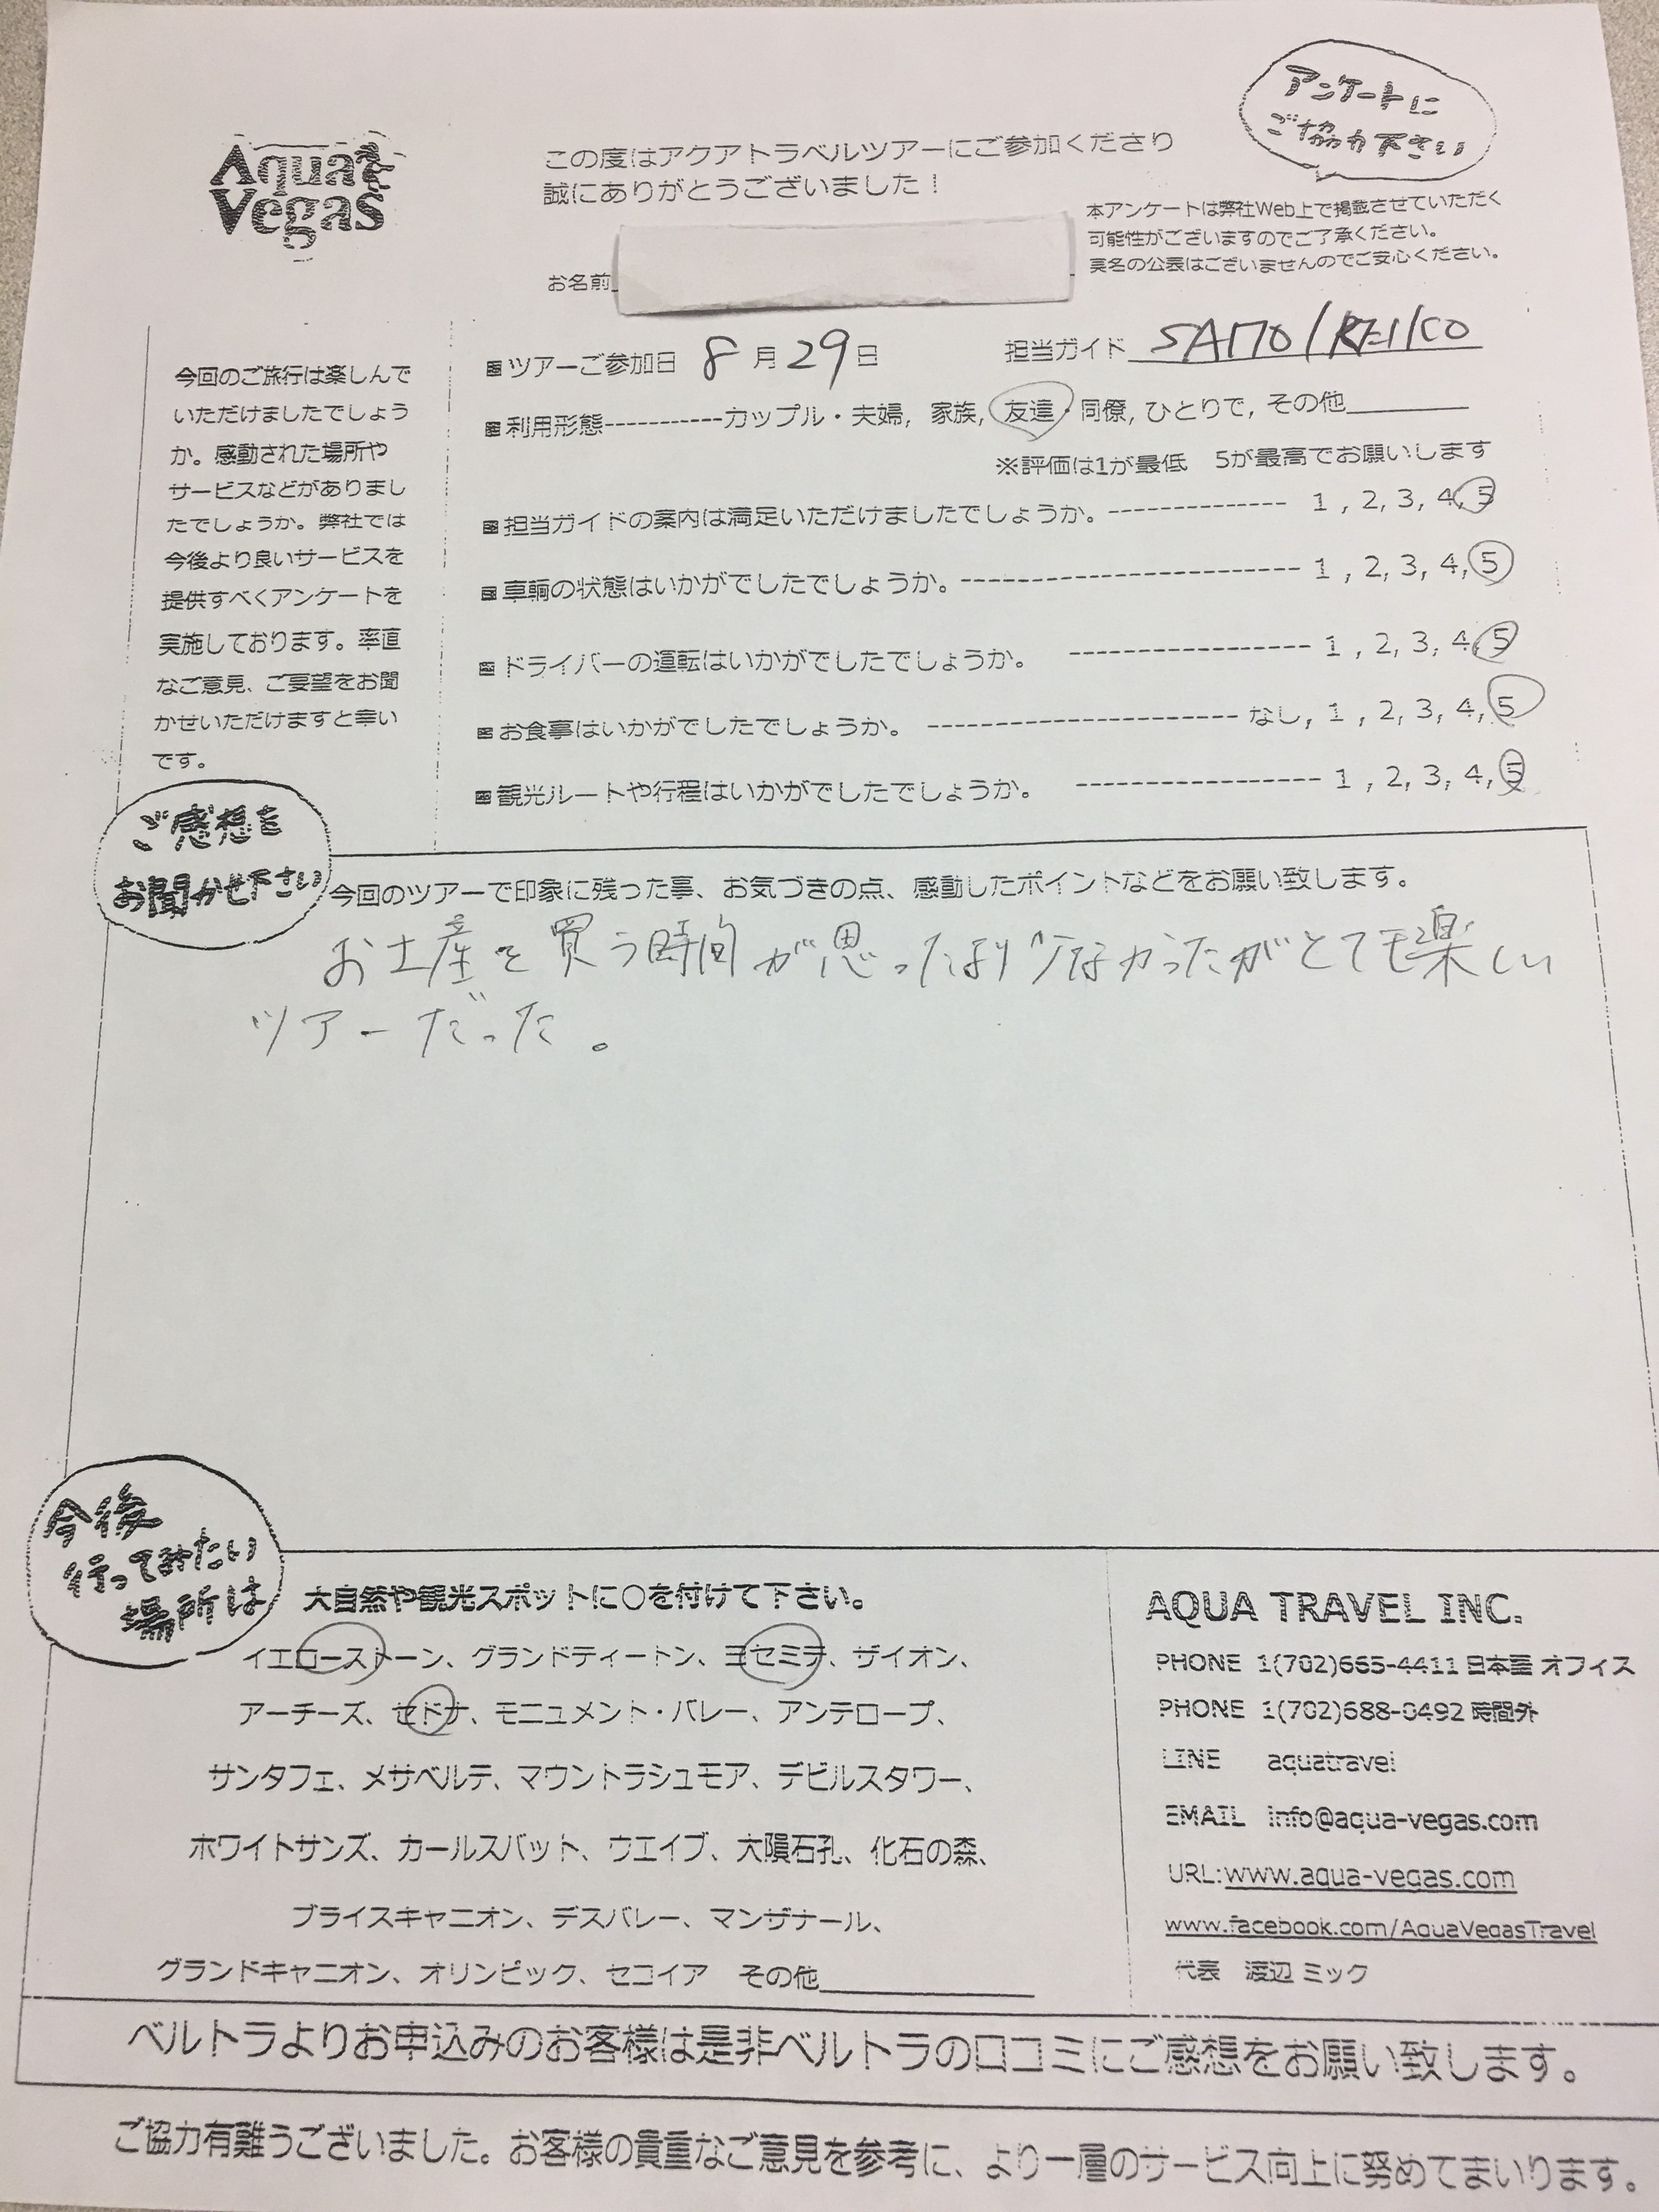 アンケートに
ご協力下さい
Aqua
Vegas
この度はアクアトラベルツアーにご参加くださり
誠にありがとうございました！
本アンケートは弊社Web上で掲載させていただく
可能性がございますのでご了承ください。
実名の公表はございませんのでご安心ください。
お名前
今回のご旅行は楽しんで
いただけましたでしょう
か。感動された場所や
サービスなどがありまし
たでしょうか。弊社では
今後より良いサービスを
提供すべくアンケートを
実施しております。率直
なご意見、ご要望をお聞
かせいただけますと幸い
です。
■ツアーご参加日 8月29日 担当ガイド SAITO/KEIKO
■利用形態-----------カップル・夫婦, 家族, 友達・同僚, ひとりで, その他
※評価は1が最低 5が最高でお願いします
■担当ガイドの案内は満足いただけましたでしょうか。-------------- 1 , 2, 3, 4, 5
■車輌の状態はいかがでしたでしょうか。--------------------------- 1 , 2, 3, 4, 5
■ドライバーの運転はいかがでしたでしょうか。 ------------------- 1 , 2, 3, 4, 5
■お食事はいかがでしたでしょうか。 ------------------------ なし, 1 , 2, 3, 4, 5
■観光ルートや行程はいかがでしたでしょうか。 ------------------- 1 , 2, 3, 4, 5
ご感想を
お聞かせ下さい
今回のツアーで印象に残った事、お気づきの点、感動したポイントなどをお願い致します。
お土産を買う時間が思ったより少なかったがとても楽しい
ツアーだった。
今後
行ってみたい
場所は
大自然や観光スポットに○を付けて下さい。
イエローストーン、グランドティートン、ヨセミテ、ザイオン、
アーチーズ、セドナ、モニュメント・バレー、アンテロープ、
サンタフェ、メサベルテ、マウントラシュモア、デビルスタワー、
ホワイトサンズ、カールスバット、ウエイブ、大隕石孔、化石の森、
ブライスキャニオン、デスバレー、マンザナール、
グランドキャニオン、オリンピック、セコイア その他
AQUA TRAVEL INC.
PHONE 1(702)665-4411 日本語 オフィス
PHONE 1(702)688-0492 時間外
LINE aquatravel
EMAIL info@aqua-vegas.com
URL:www.aqua-vegas.com
www.facebook.com/AquaVegasTravel
代表 渡辺 ミック
ベルトラよりお申込みのお客様は是非ベルトラの口コミにご感想をお願い致します。
ご協力有難うございました。お客様の貴重なご意見を参考に、より一層のサービス向上に努めてまいります。